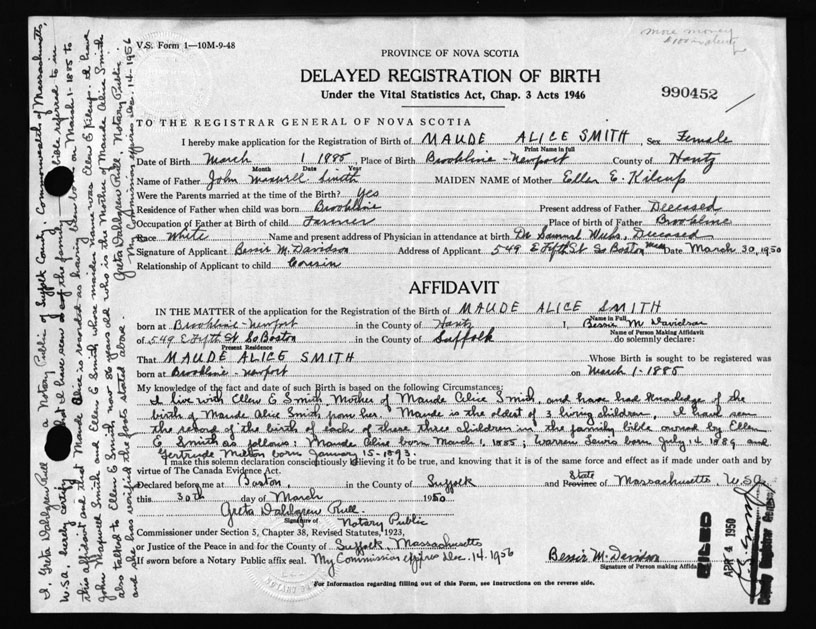 V.S. Form 1—10M-9-48
more money
PROVINCE OF NOVA SCOTIA
DELAYED REGISTRATION OF BIRTH
Under the Vital Statistics Act, Chap. 3 Acts 1946
990452
TO THE REGISTRAR GENERAL OF NOVA SCOTIA
I hereby make application for the Registration of Birth of MAUDE ALICE SMITH, Sex Female
Print Name in full
Date of Birth March 1 1885, Place of Birth Brookline - Newport County of Hantz
Month Date Year
Name of Father John Maxwell Smith MAIDEN NAME of Mother Ellen E. Kilcup
Were the Parents married at the time of Birth? Yes
Residence of Father when child was born Brookline Present address of Father Deceased
Occupation of Father at Birth of child Farmer Place of birth of Father Brookline
Race White Name and present address of Physician in attendance at birth Dr Samuel Deceased
Signature of Applicant Bessie M. Davidson Address of Applicant 549 E Fifth St So Boston Mass Date March 30, 1950
Relationship of Applicant to child Cousin
AFFIDAVIT
IN THE MATTER of the application for the Registration of the Birth of MAUDE ALICE SMITH
Name in Full
born at Brookline - Newport in the County of Hantz I, Bessie M Davidson
Name of Person Making Affidavit
of 549 E Fifth St So Boston in the County of Suffolk do solemnly declare:
Present Residence
That MAUDE ALICE SMITH Whose Birth is sought to be registered was
born at Brookline - Newport on March 1 - 1885
My knowledge of the fact and date of such Birth is based on the following Circumstances:
I live with Ellen E Smith Mother of Maude Alice Smith, and have had knowledge of the
birth of Maude Alice Smith from her. Maude is the oldest of 3 living children, I have seen
the record of the birth of each of these three children in the family bible owned by Ellen
E Smith as follows: Maude Alice born March 1, 1885; Warren Lewis born July 14 1889 and
Gertrude Melton born January 15-1893.
I make this solemn declaration conscientiously believing it to be true, and knowing that it is of the same force and effect as if made under oath and by
virtue of The Canada Evidence Act.
Declared before me at Boston, in the County of Suffolk State and Province of Massachusetts U.S.A.
this 30th day of March 1950
Greta Dahlgren Rull
Signature of Notary Public
Commissioner under Section 5, Chapter 38, Revised Statutes, 1923,
or Justice of the Peace in and for the County of Suffolk, Massachusetts
If sworn before a Notary Public affix seal. My Commission expires Dec. 14, 1956
Bessie M. Davidson
Signature of Person making Affidavit
For Information regarding filling out of this Form, see Instructions on the reverse side.
FILED
APR 4 1950
I, Greta Dahlgren Rull a Notary Public of Suffolk County, Commonwealth of Massachusetts,
U.S.A., hereby certify that I have seen the family bible referred to in
this affidavit and that Maude Alice is recorded as having been born on March 1-1885 to
John Maxwell Smith and Ellen E Smith, whose maiden name was Ellen E Kilcup. I have
also talked to Ellen E Smith, now 86 years old who is the Mother of Maude Alice Smith
and she has verified the facts stated above. Greta Dahlgren Rull, Notary Public
My Commission expires Dec. 14-1956